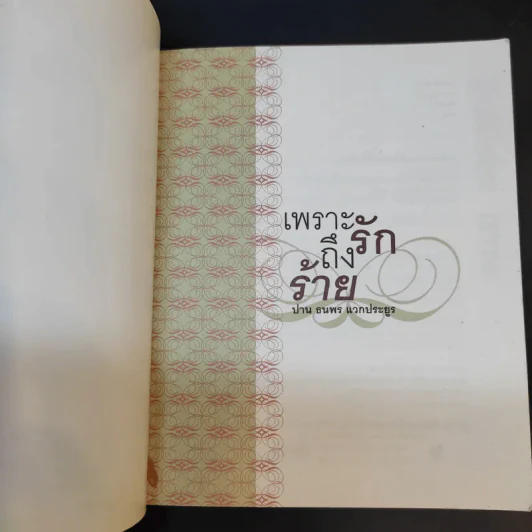 เพราะรัก
ถึงร้าย
ปาน ธนพร แวกประยูร